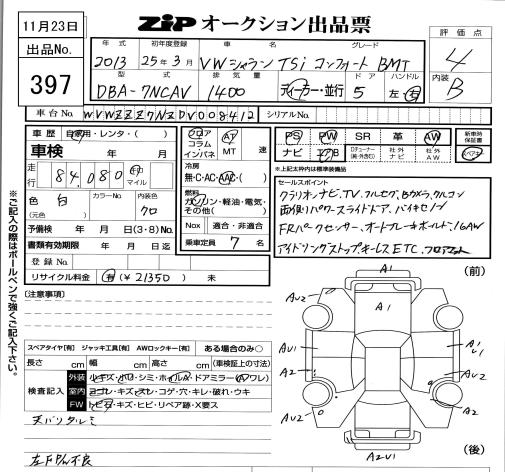 11月23日
ZiP オークション出品票
出品No.
397
評価点
4
内装
B
年式 初年度登録 車名 グレード
2013 25年3月 VWシャラン TSi コンフォート BMT
型式 排気量 ドア ハンドル
DBA-7NCAV 1400 ディーラー・並行 5 左・右
車台No. WVWZZZ7NZDV008412 シリアルNo.
車歴 自家用・レンタ・( )
車検
走行 84,080 km マイル
色 白 カラーNo. 内装色 クロ
(元色)
予備検 年 月 日(3・8)No.
書類有効期限 年 月 日迄
登録No.
リサイクル料金 有(¥21350) 未
フロア コラム インパネ
AT MT 速
冷房
無・C・AC・AAC・( )
燃料
ガソリン・軽油・電気・その他( )
Nox 適合・非適合
乗車定員 7 名
PS PW SR 革 AW
ナビ エアB Dチューナー(純・外含む) 社外ナビ 社外AW
新車時保証書
スペアキー
*上記太枠内は標準装備品
セールスポイント
クラリオンナビ,TV,フルセグ,Bカメラ,クルコン
両側パワースライドドア,バイキセノン
FRパークセンサー,オートブレーキホールド,16AW
アイドリングストップキーレスETC,フロアマット
※ご記入の際はボールペンで強くご記入下さい。
[注意事項]
スペアタイヤ[有] ジャッキ工具[有] AWロックキー[有] ある場合のみ○
長さ cm 幅 cm 高さ cm (車検証上の寸法)
検査記入
外装 小キズ・ボロ・シミ・ホイールA・ドアミラー(A・ワレ)
室内 ヨゴレ・キズ・スレ・コゲ・穴・キレ・破れ・ウキ
FW トビ石・キズ・ヒビ・リペア跡・X要ス
天バリタルミ
(前)
A1
A1
AU2
A2
AU1
A1
U1
A2
AU2
AU2
A2
A2U1
(後)